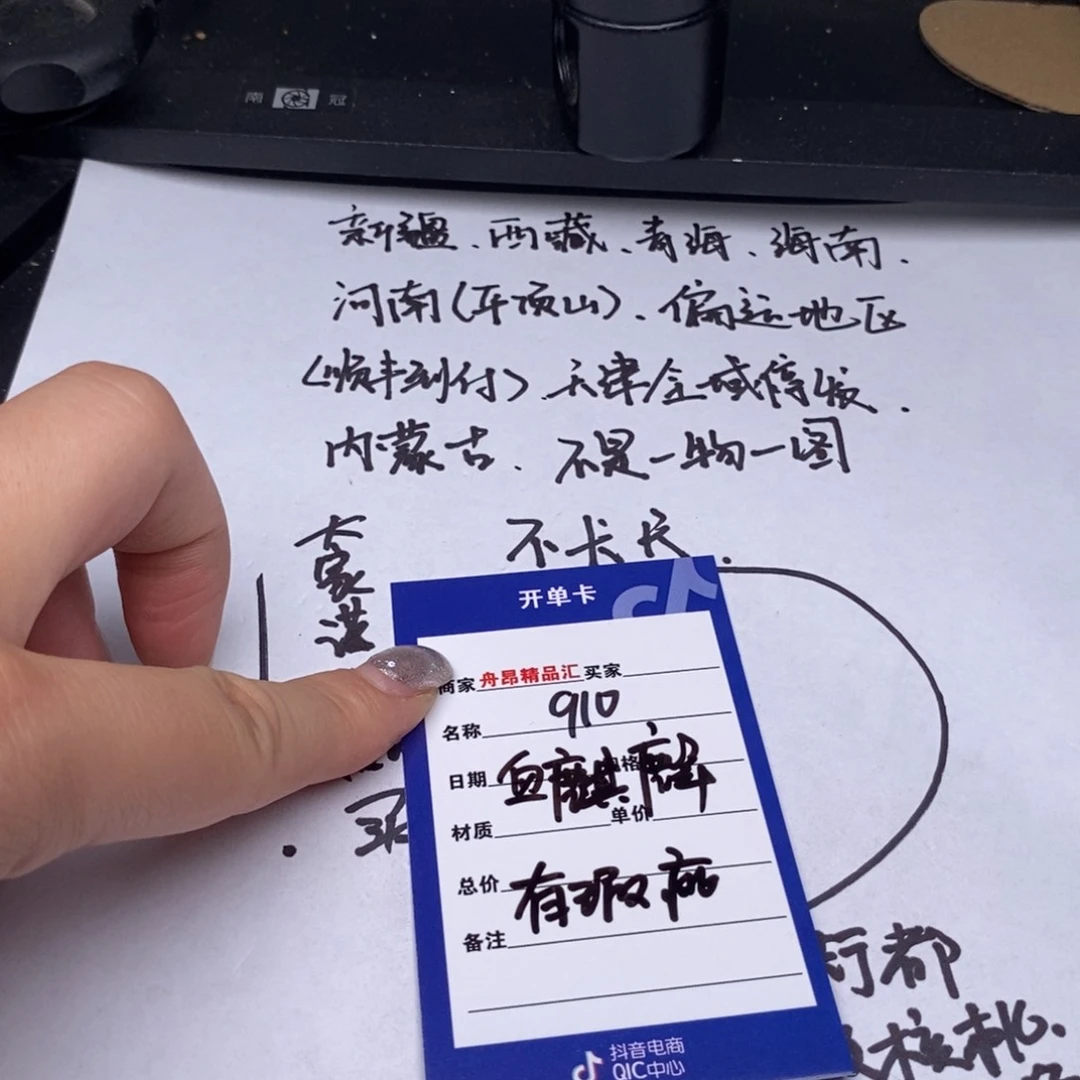 南 冠
新疆、西藏、青海、海南.
河南(平顶山)、偏远地区
(顺丰到付)天津全域停发.
内蒙古. 不是一物一图
不卡尺.
大家
开单卡
商家 舟昂精品汇 买家
名称 910
日期 血麒麟
材质 单价
总价 有瑕疵
备注
都
核桃.
抖音电商
QIC中心